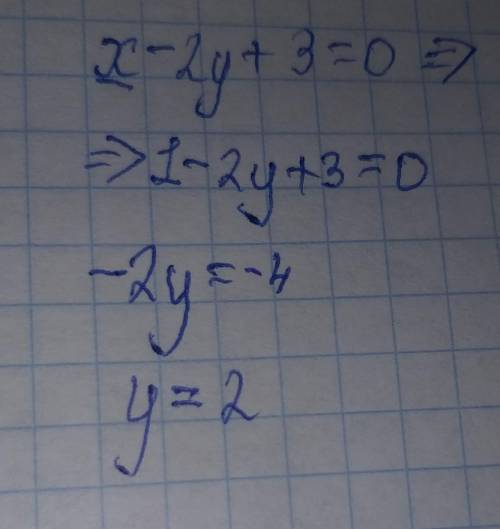 x - 2y + 3 = 0 ⇒
⇒ 1 - 2y + 3 = 0
-2y = -4
y = 2